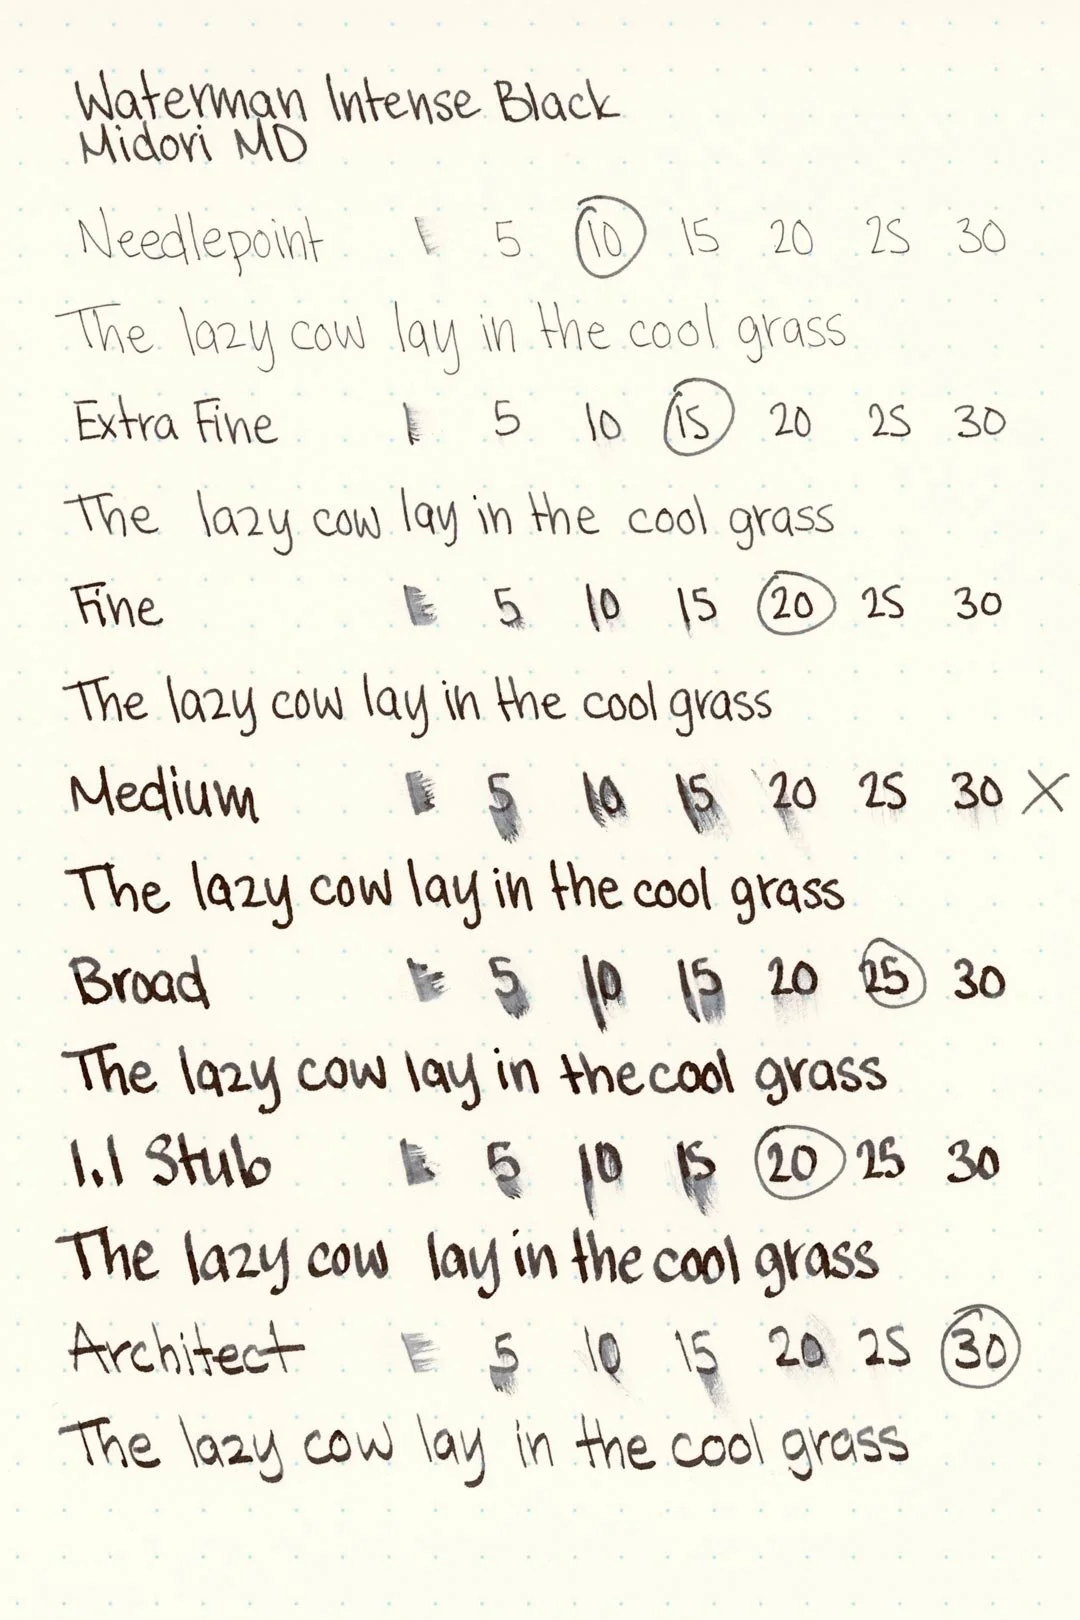 Waterman Intense Black
Midori MD
Needlepoint 1 5 10 15 20 25 30
The lazy cow lay in the cool grass
Extra Fine 1 5 10 15 20 25 30
The lazy cow lay in the cool grass
Fine 1 5 10 15 20 25 30
The lazy cow lay in the cool grass
Medium 1 5 10 15 20 25 30 X
The lazy cow lay in the cool grass
Broad 1 5 10 15 20 25 30
The lazy cow lay in the cool grass
1.1 Stub 1 5 10 15 20 25 30
The lazy cow lay in the cool grass
Architect 1 5 10 15 20 25 30
The lazy cow lay in the cool grass